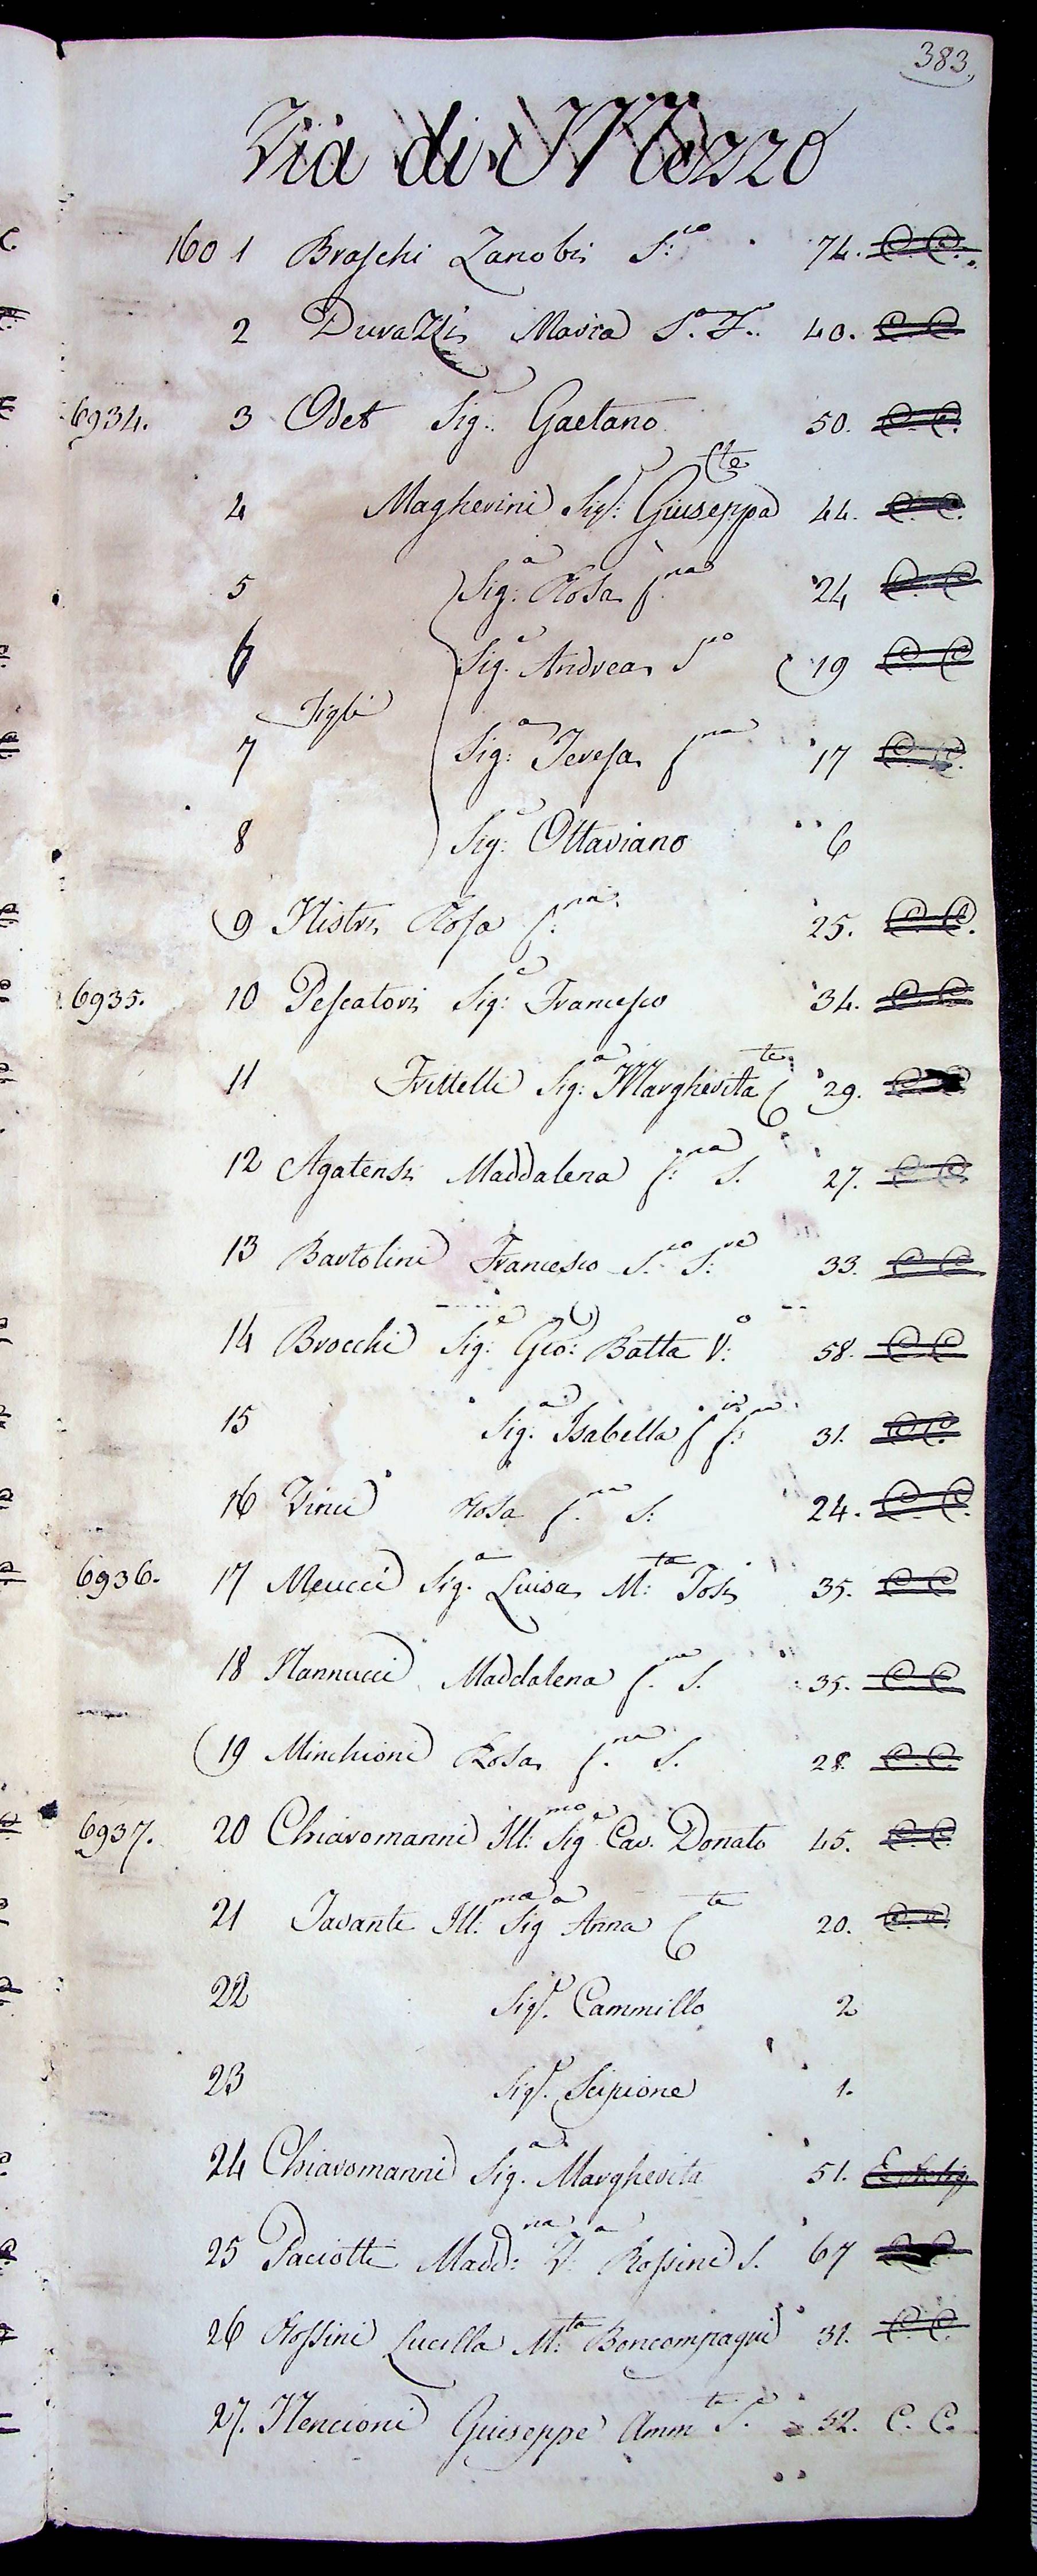 383.
Via di Mezzo
160 1 Braschi Zanobi S:co 74. C. C.
2 Duvalli Maria S.a F. 40. C. C.
6934. 3 Odet Sig.e Gaetano 50. C. C.
4 Magherini Sig.a Giuseppa Cte 44. C. C.
5 Sig:a Rosa f.na 24 C. C.
6 Sig:e Andrea S.co 19 C. C.
Figli
7 Sig:a Teresa f.na 17 C. C.
8 Sig:e Ottaviano 6
9 Nistri Rosa f:na 25. C. C.
6935. 10 Pescatori Sig:e Francesco 34. C. C.
11 Frittelli Sig:a Margherita C.te 29. C. C.
12 Agatensi Maddalena f:na S. 27. C. C.
13 Bartolini Francesco S.co S:re 33. C. C.
14 Brocchi Sig:e Gio: Batta V:o 58. C. C.
15 Sig.a Isabella f.ia f:na 31. C. C.
16 Vinci Rosa f.na S: 24. C. C.
6936. 17 Meucci Sig.a Luisa M:ta Tosi 35. C. C.
18 Nannucci Maddalena f.na S. 35. C. C.
19 Minchioni Rosa f.na S. 28. C. C.
6937. 20 Chiaromanni Ill:mo Sig.e Cav. Donato 45. C. C.
21 Tavanti Ill:ma Sig.a Anna C.te 20. C. C.
22 Sig.e Cammillo 2
23 Sig.e Scipione 1.
24 Chiaromanni Sig.a Margherita 51.
25 Paciotti Madd:na V.a Rossini S. 67 C. C.
26 Rossini Lucilla M:ta Boncompagni 31. C. C.
27. Nencioni Giuseppe Amm.to S. 52. C. C.